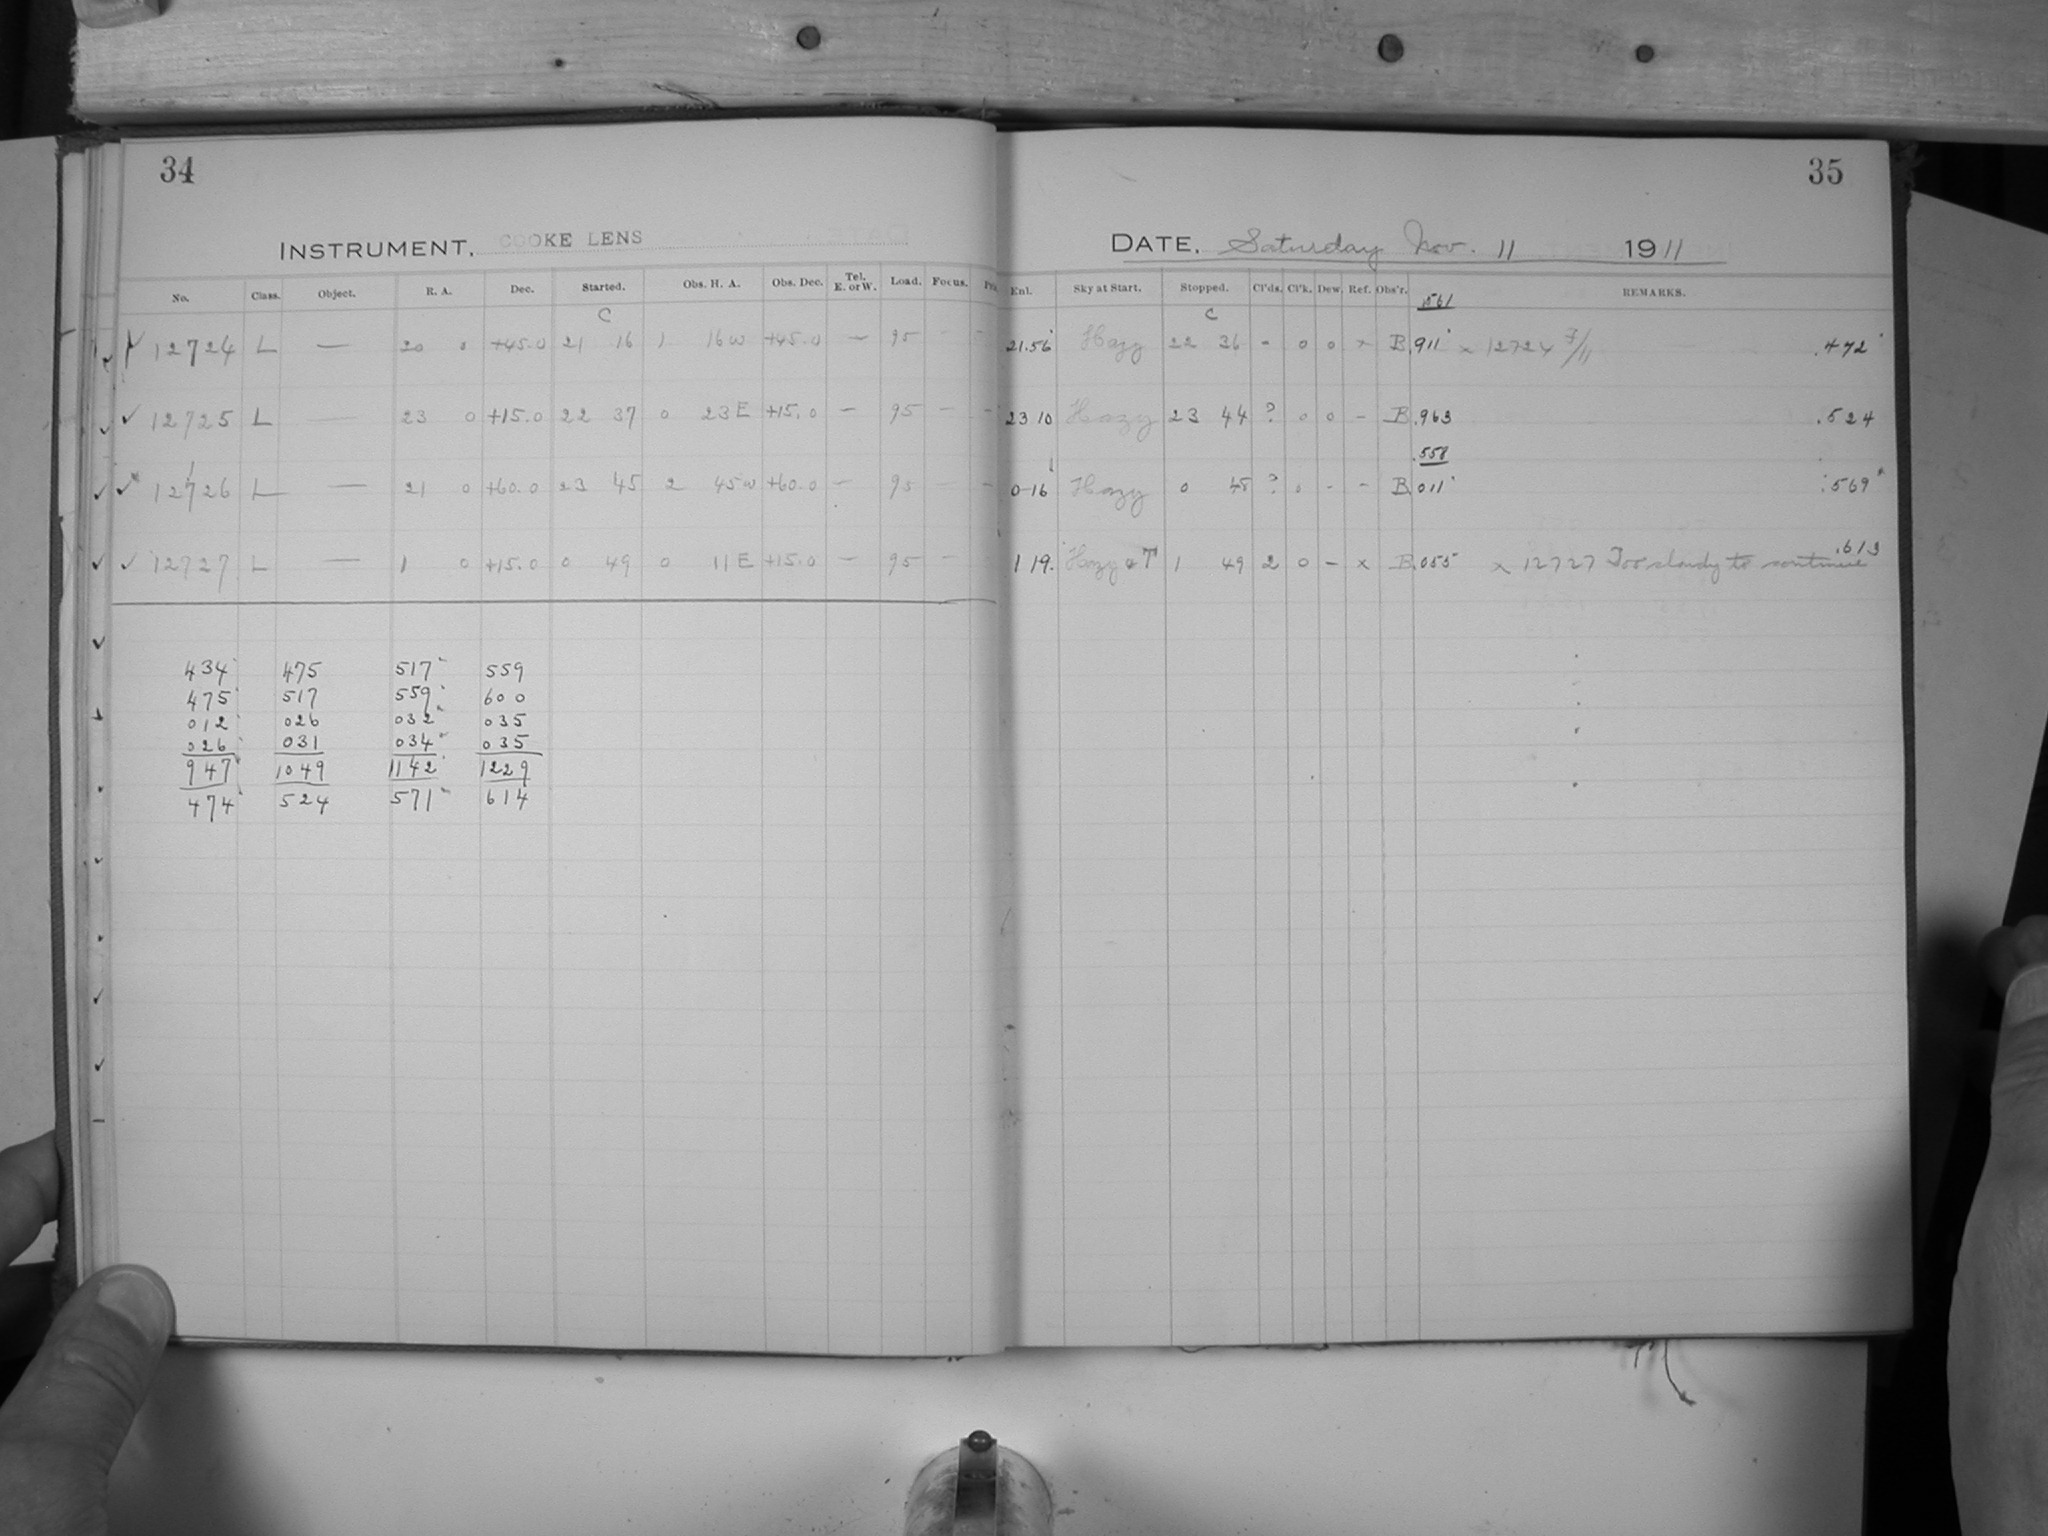 34
INSTRUMENT. COOKE LENS
No. Class. Object. R. A. Dec. Started. Obs. H. A. Obs. Dec. Tel. E. or W. Load. Focus.
C
✓ 12724 L — 20 0 +45.0 21 16 1 16 W +45.0 — 95 — —
✓ 12725 L — 23 0 +15.0 22 37 0 23 E +15.0 — 95 — —
✓ 12726 L — 21 0 +60.0 23 45 2 45 W +60.0 — 95 — —
✓ 12727 L — 1 0 +15.0 0 49 0 11 E +15.0 — 95 —
434 475 517 559
475 517 559 600
012 026 032 035
026 031 034 035
947 1049 1142 1229
474 524 571 614
35
DATE. Saturday Nov. 11 1911
Enl. Sky at Start. Stopped. Cl'ds. Cl'k. Dew. Ref. Obs'r. REMARKS.
C .561
21.56 Hazy 22 36 - 0 0 x B .911 x 12724 .472
23 10 Hazy 23 44 ? 0 0 - B .963 .524
.558
0-16 Hazy 0 45 ? 0 - - B .011 .569
1 19. Hazy + T 1 49 2 0 - x B .055 x 12727 Too cloudy to continue .613